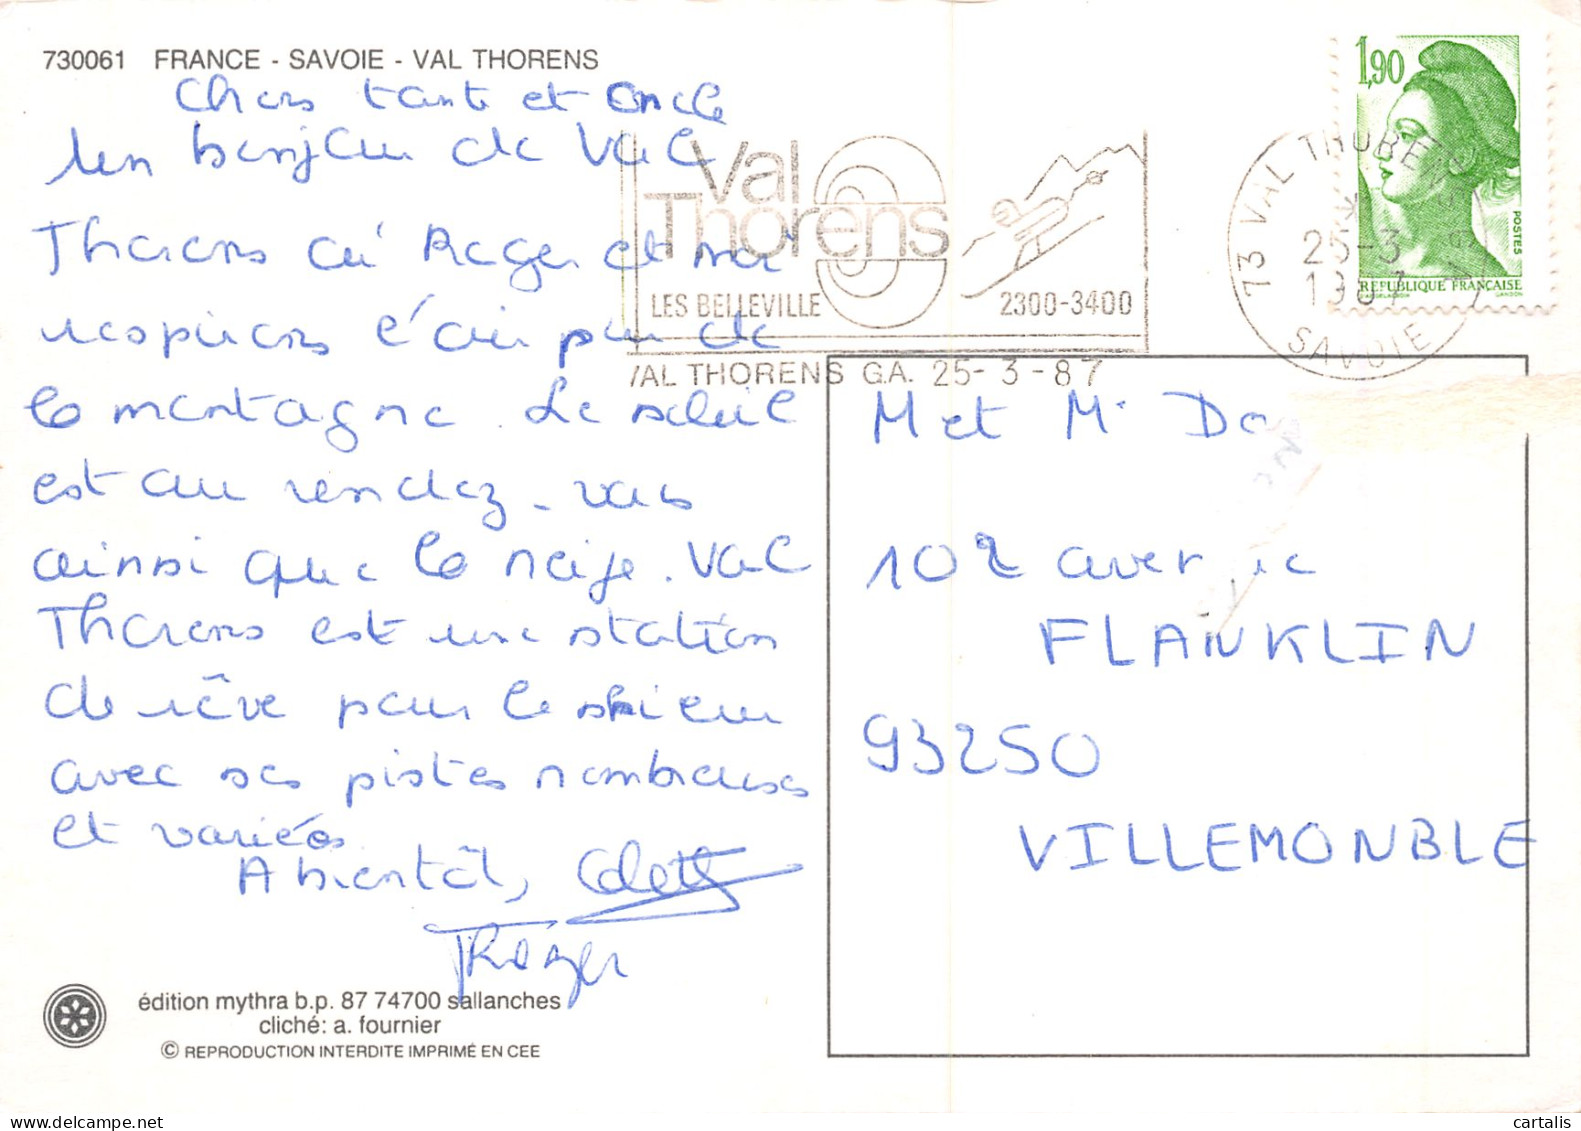 730061 FRANCE - SAVOIE - VAL THORENS
Chers tante et oncle
Un bonjour de Val
Thorens où Roger et moi
respirons l'air pur de
la montagne. Le soleil
est au rendez-vous
ainsi que la neige. Val
Thorens est une station
de rêve pour le skieur
avec ses pistes nombreuses
et variées
A bientôt, Colette
Roger
édition mythra b.p. 87 74700 sallanches
cliché: a. fournier
© REPRODUCTION INTERDITE IMPRIMÉ EN CEE
Val
Thorens
LES BELLEVILLE 2300-3400
VAL THORENS G.A. 25-3-87
73 VAL THORENS
25-3
1987
SAVOIE
1,90
POSTES
REPUBLIQUE FRANÇAISE
M et Mme
102 avenue
FLANKLIN
93250
VILLEMONBLE
cartalis